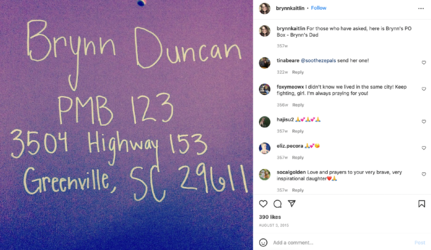 Brynn Duncan
PMB 123
3504 Highway 153
Greenville, SC 29611
brynnkaitlin • Follow
brynnkaitlin For those who have asked, here is Brynn's PO
Box - Brynn's Dad
357w
tinabeare @soothezepals send her one!
322w Reply
foxymeowx I didn't know we lived in the same city! Keep
fighting, girl. I'm always praying for you!
Reply
hajisu2 🙏💕🙏💕🙏
Reply
eliz.pecora 🙏💕😘
Reply
socalgolden Love and prayers to your very brave, very
inspirational daughter❤️🙏
357w Reply
390 likes
AUGUST 2, 2015
Add a comment...
Post